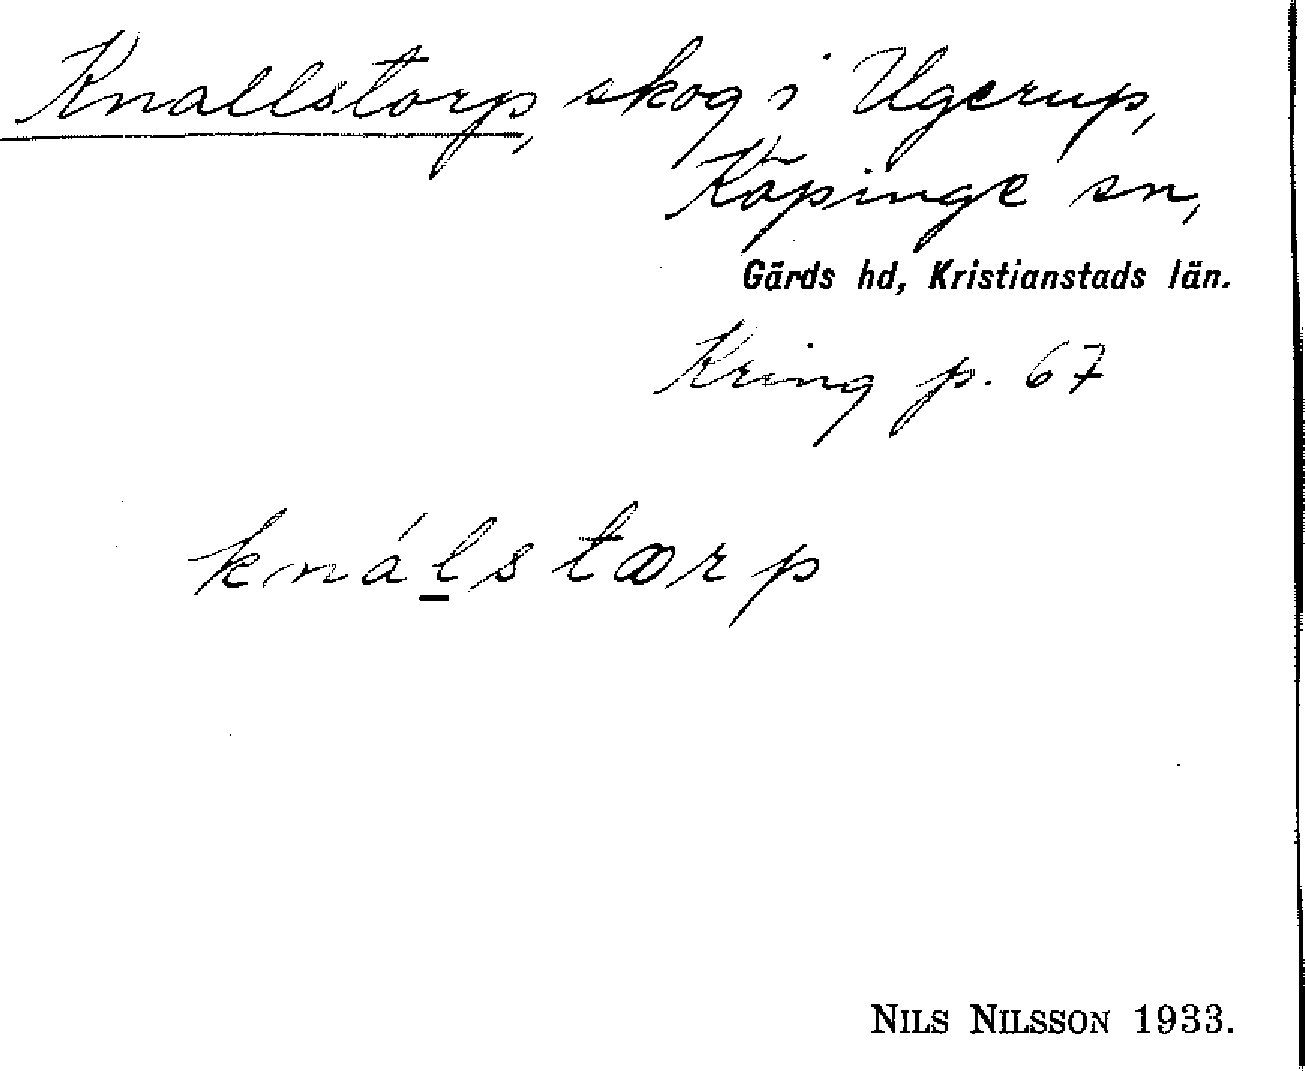 Knallstorp, skog i Ugerup,
Köpinge sn,
Gärds hd, Kristianstads län.
Kring p. 67
knálstœrp
NILS NILSSON 1933.